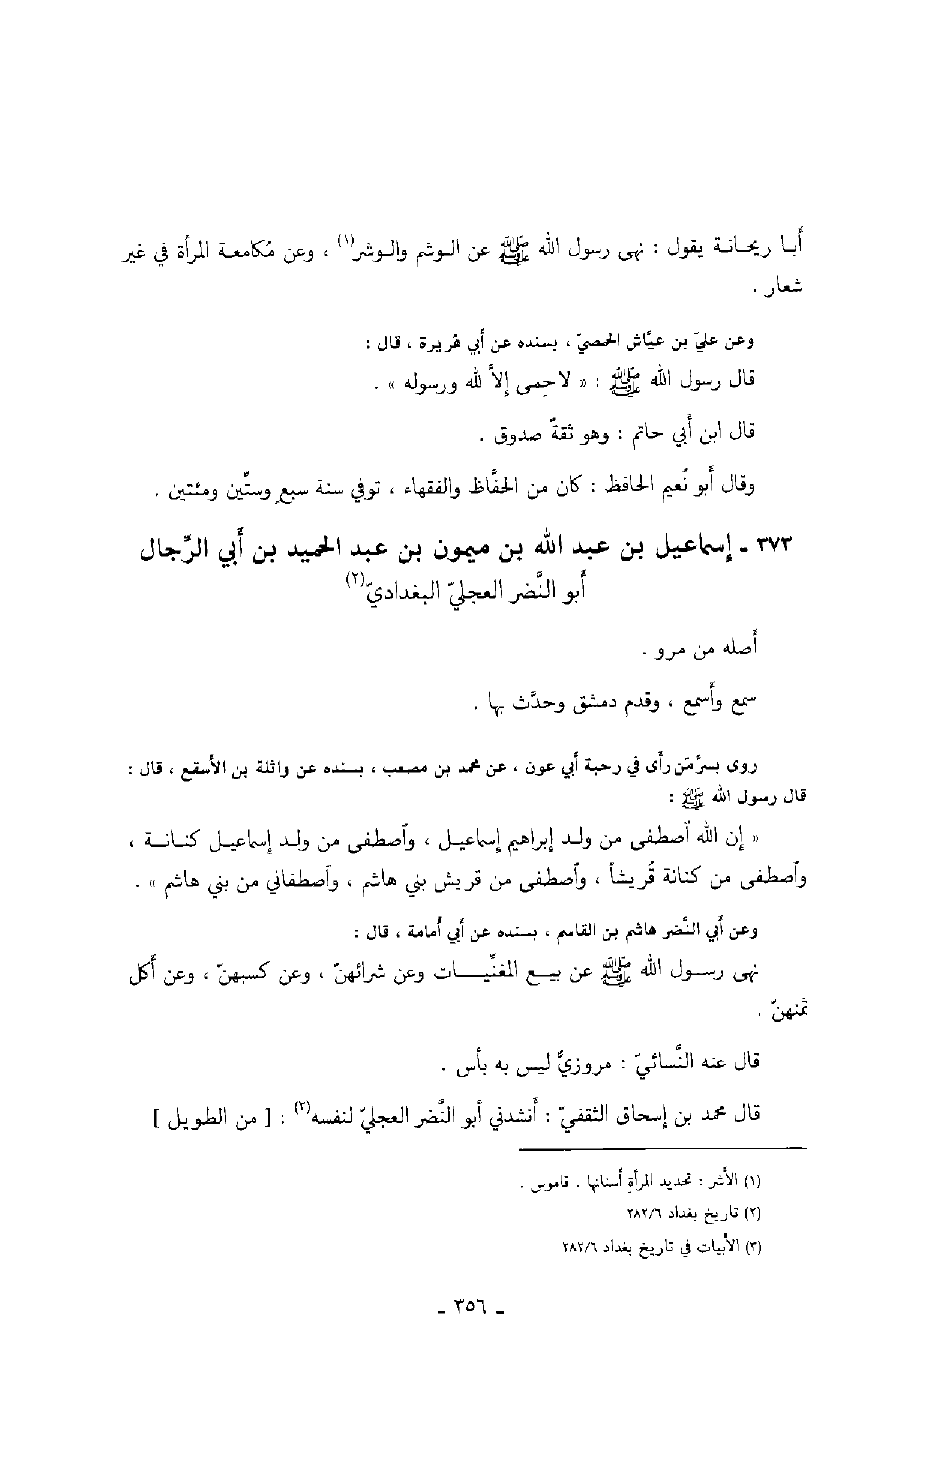 أبا ريحانة يقول : نهى رسول الله ﷺ عن الوشم والوشر(١) ، وعن مُكامعة المرأة في غير
شعار .
وعن عليّ بن عيَّاش الحمصيّ ، بسنده عن أبي هُريرة ، قال :
قال رسول الله ﷺ : « لا حِمى إلاَّ لله ورسوله » .
قال ابن أبي حاتم : وهو ثقةٌ صدوق .
وقال أبو نُعيم الحافظ : كان من الحفَّاظ والفقهاء ، توفي سنة سبعٍ وستِّين ومئتين .
٣٧٣ ـ إسماعيل بن عبد الله بن ميمون بن عبد الحميد بن أبي الرِّجال
أبو النَّضر العجليّ البغداديّ(٢)
أصله من مرو .
سمع وأسمع ، وقدم دمشق وحدَّث بها .
روى بسرَّمَن رأى في رحبة أبي عون ، عن محمد بن مصعب ، بسنده عن واثلة بن الأسقع ، قال :
قال رسول الله ﷺ :
« إن الله ٱصطفى من ولد إبراهيم إسماعيل ، وٱصطفى من ولد إسماعيل كنانة ،
وٱصطفى من كنانة قُريشاً ، وٱصطفى من قريش بني هاشم ، وٱصطفاني من بني هاشم » .
وعن أبي النَّضر هاشم بن القاسم ، بسنده عن أبي أُمامة ، قال :
نهى رسول الله ﷺ عن بيع المغنِّيات وعن شرائهنّ ، وعن كسبهنّ ، وعن أكل
ثمنهنّ .
قال عنه النَّسائيّ : مروزيٌّ ليس به بأس .
قال محمد بن إسحاق الثقفيّ : أنشدني أبو النَّضر العجليّ لنفسه(٣) : [ من الطويل ]
(١) الأشر : تحديد المرأة أسنانها . قاموس .
(٢) تاريخ بغداد ٢٨٢/٦
(٣) الأبيات في تاريخ بغداد ٢٨٢/٦
ـ ٣٥٦ ـ